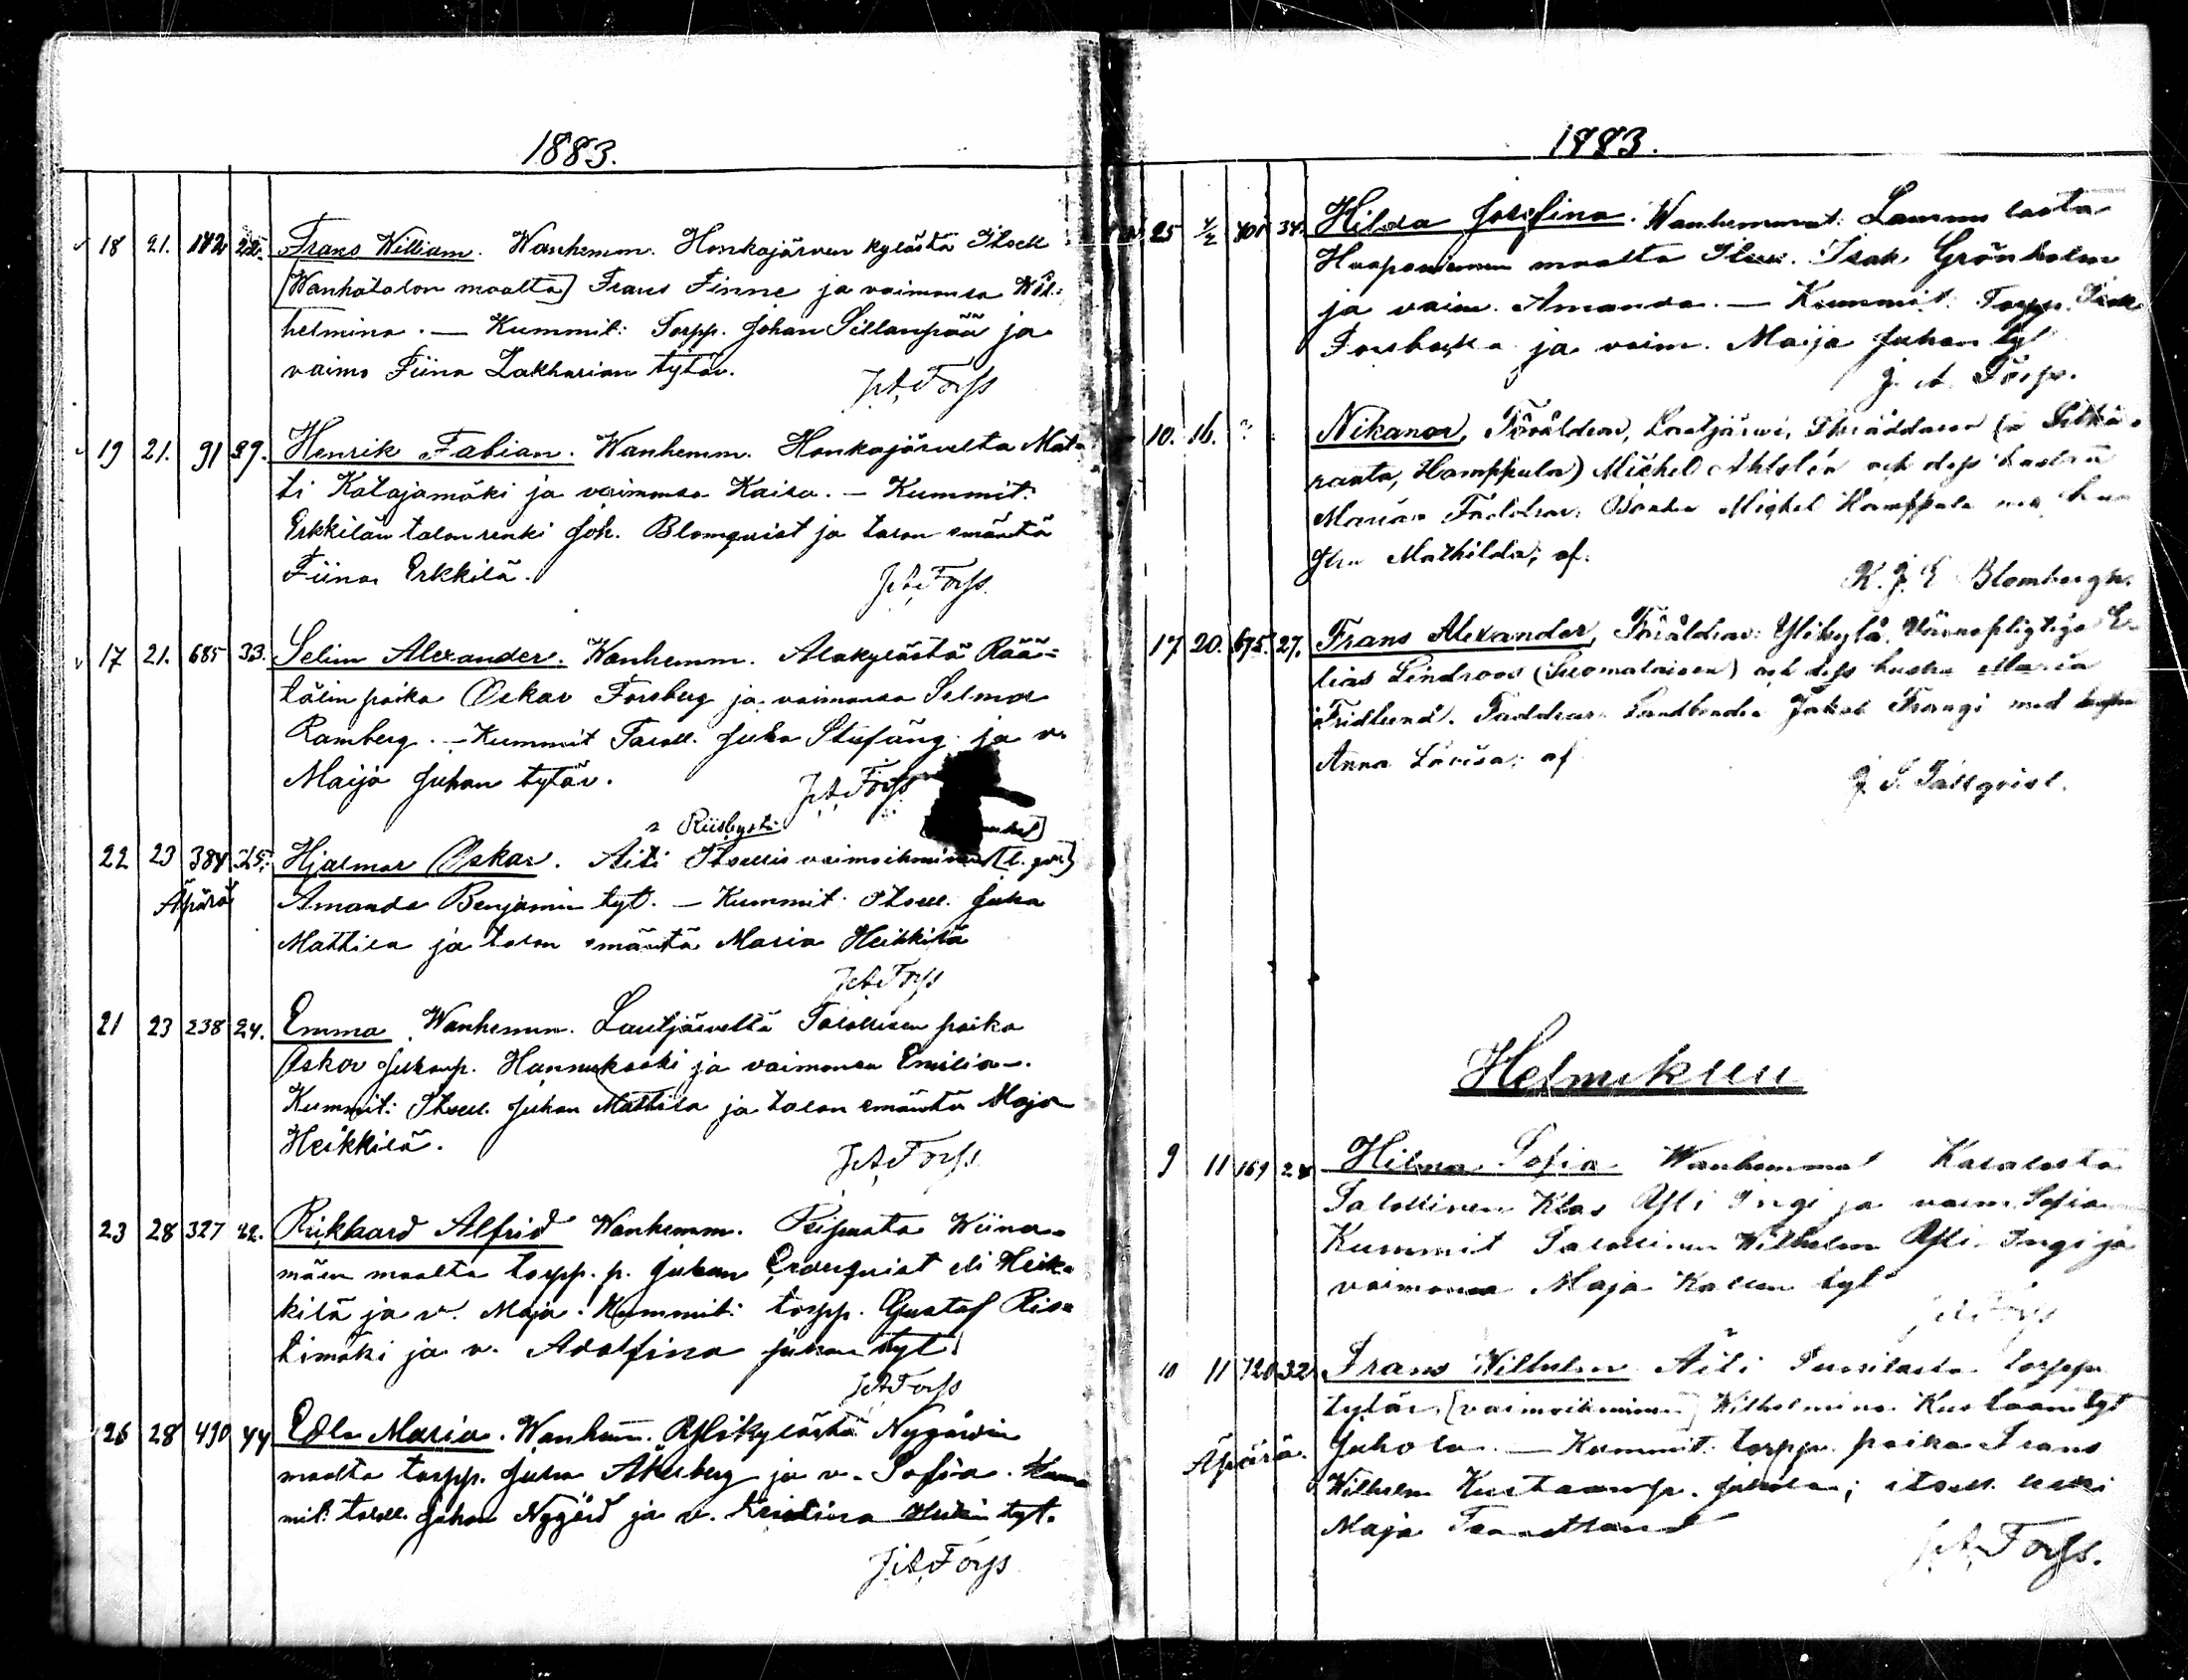 1883.
18 21. 182 22. Frans William. Wanhemm. Honkajärven kylästä Itsell
(Wanhatalon maalta) Frans Finne ja vaimonsa Wil-
helmina. — Kummit: Torpp. Johan Sillanpää ja
vaimo Fiina Zakharian tytär.
J.A. Forss
19 21. 91 39. Henrik Fabian. Wanhemm. Honkajärveltä Mat-
ti Katajamäki ja vaimonsa Kaisa. — Kummit:
Erkkilän talon renki Joh. Blomqvist ja talon emäntä
Fiina Erkkilä.
J.A. Forss.
17 21. 685 33. Selim Alexander. Wanhemm. Alakylästä Rää-
tälin poika Oskar Forsberg ja vaimonsa Selma
Ramberg. — Kummit Taloll. Juha Stufäng ja v.
Maija Juhan tytär.
J.A. Forss
Riisbysti
22 23 384 25. Hjalmar Oskar. Äiti Itsellis vaimoihminen
Äpärä Amanda Benjamin tyt. — Kummit: Itsell. Juha
Mattila ja talon emäntä Maria Heikkilä
J.A. Forss
21 23 238 24. Emma Wanhemm. Lautjärveltä Talollisen poika
Oskar Juhanp. Hannuksaki ja vaimonsa Emilia —.
Kummit: Itsell. Juhan Mattila ja talon emäntä Maja
Heikkilä.
J.A. Forss
23 28 327 22. Rikhard Alfrid Wanhemm. Peipusta Wiina-
mäen maalta torpp. p. Juhan eli Heik-
kilä ja v. Maja. Kummit: torpp. Gustaf Ris-
timäki ja v. Adolfina Juhan tyt.
J.A. Forss
26 28 490 44 Edla Maria. Wanhem. Ylikylästä Nygårdin
maalta torpp. Juha Åkerberg ja v. Sofia. Kum-
mit: taloll. Johan Nygård ja v. Kristina Heikin tyt.
J.A. Forss
1883.
25 1/2 34. Hilda Josefina. Wanhemmat: Lammaslasta
Haaponiemen maalta Itsell. Isak Grönholm
ja vaim. Amanda. — Kummit: Torpp. Isak
Forsbacka ja vaim. Maija Juhan tyt
J. A. Forss.
10. 16. ? Nikanor, Föräldrar, Lautjärwi, Skräddaren (
ranta, Hamppula) Michel Ahlslén och dess hustru
Maria. Faddrar: Bonden Michel Hamppula med hus-
Mathilda; af.
K. J. E Blombergh.
17 20. 675. 27. Frans Alexander, Föräldrar: Ylikylä, Värnepligtige E-
lias Lindroos (Suomalainen) och dess hustru Maria
Fridlund. Faddrar: Landbonden Jakob Frangi med hustru
Anna Lovisa; af
J. S. Pallqvist.
Helmikuu
9 11 169 28 Hilma Sofia Wanhemmat Kasalasta
Talollinen Klas Yli Ingi ja vaim. Sofia
Kummit Talollinen Wilhelm Yli Ingi ja
vaimonsa Maja Kallen tyt
J.A. Forss
10 11 720 32 Frans Wilhelm Äiti Suosilasta torpp.
tytär, (vaimoihminen) Wilhelmina Kustaan tyt
Äpärä. Juhola. — Kummit: torpp. poika Frans
Wilhelm Kustaanp. Juhola; itsell. leski
Maja
J.A. Forss.